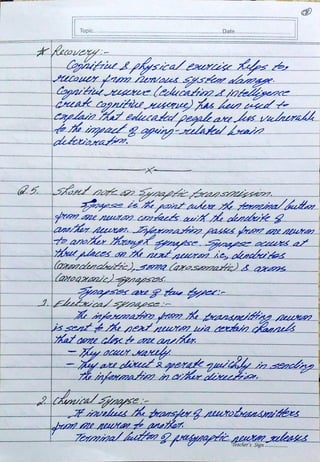 Topic
Date
* Recovery :-
Cognitive & physical exercise helps to
recover from nervous system damage.
Cognitive reserve (education & intelligence
create cognitive reserve) has been used to
explain that educated people are less vulnerable
to the impact of ageing-related brain
deterioration.
—x—
Q.5. Short note on Synaptic transmission.
Synapse is the point where the terminal button
from one neuron contacts with the dendrite of
another neuron. Information passes from one neuron
to another through synapse. Synapse occurs at
three places on the next neuron i.e., dendrites
(axondendritic), soma (axosomatic) & axons
(axoaxonic) synapses.
Synapses are of two types :-
1. Electrical synapse :-
The information from the transmitting neuron
is sent to the next neuron via certain channels
that come close to one another.
- They occur rarely.
- They are direct & operate quickly in sending
the information in either direction.
2. Chemical Synapse :-
It involves the transfer of neurotransmitters
from one neuron to another.
Terminal button of presynaptic neuron releases
Teacher's Sign